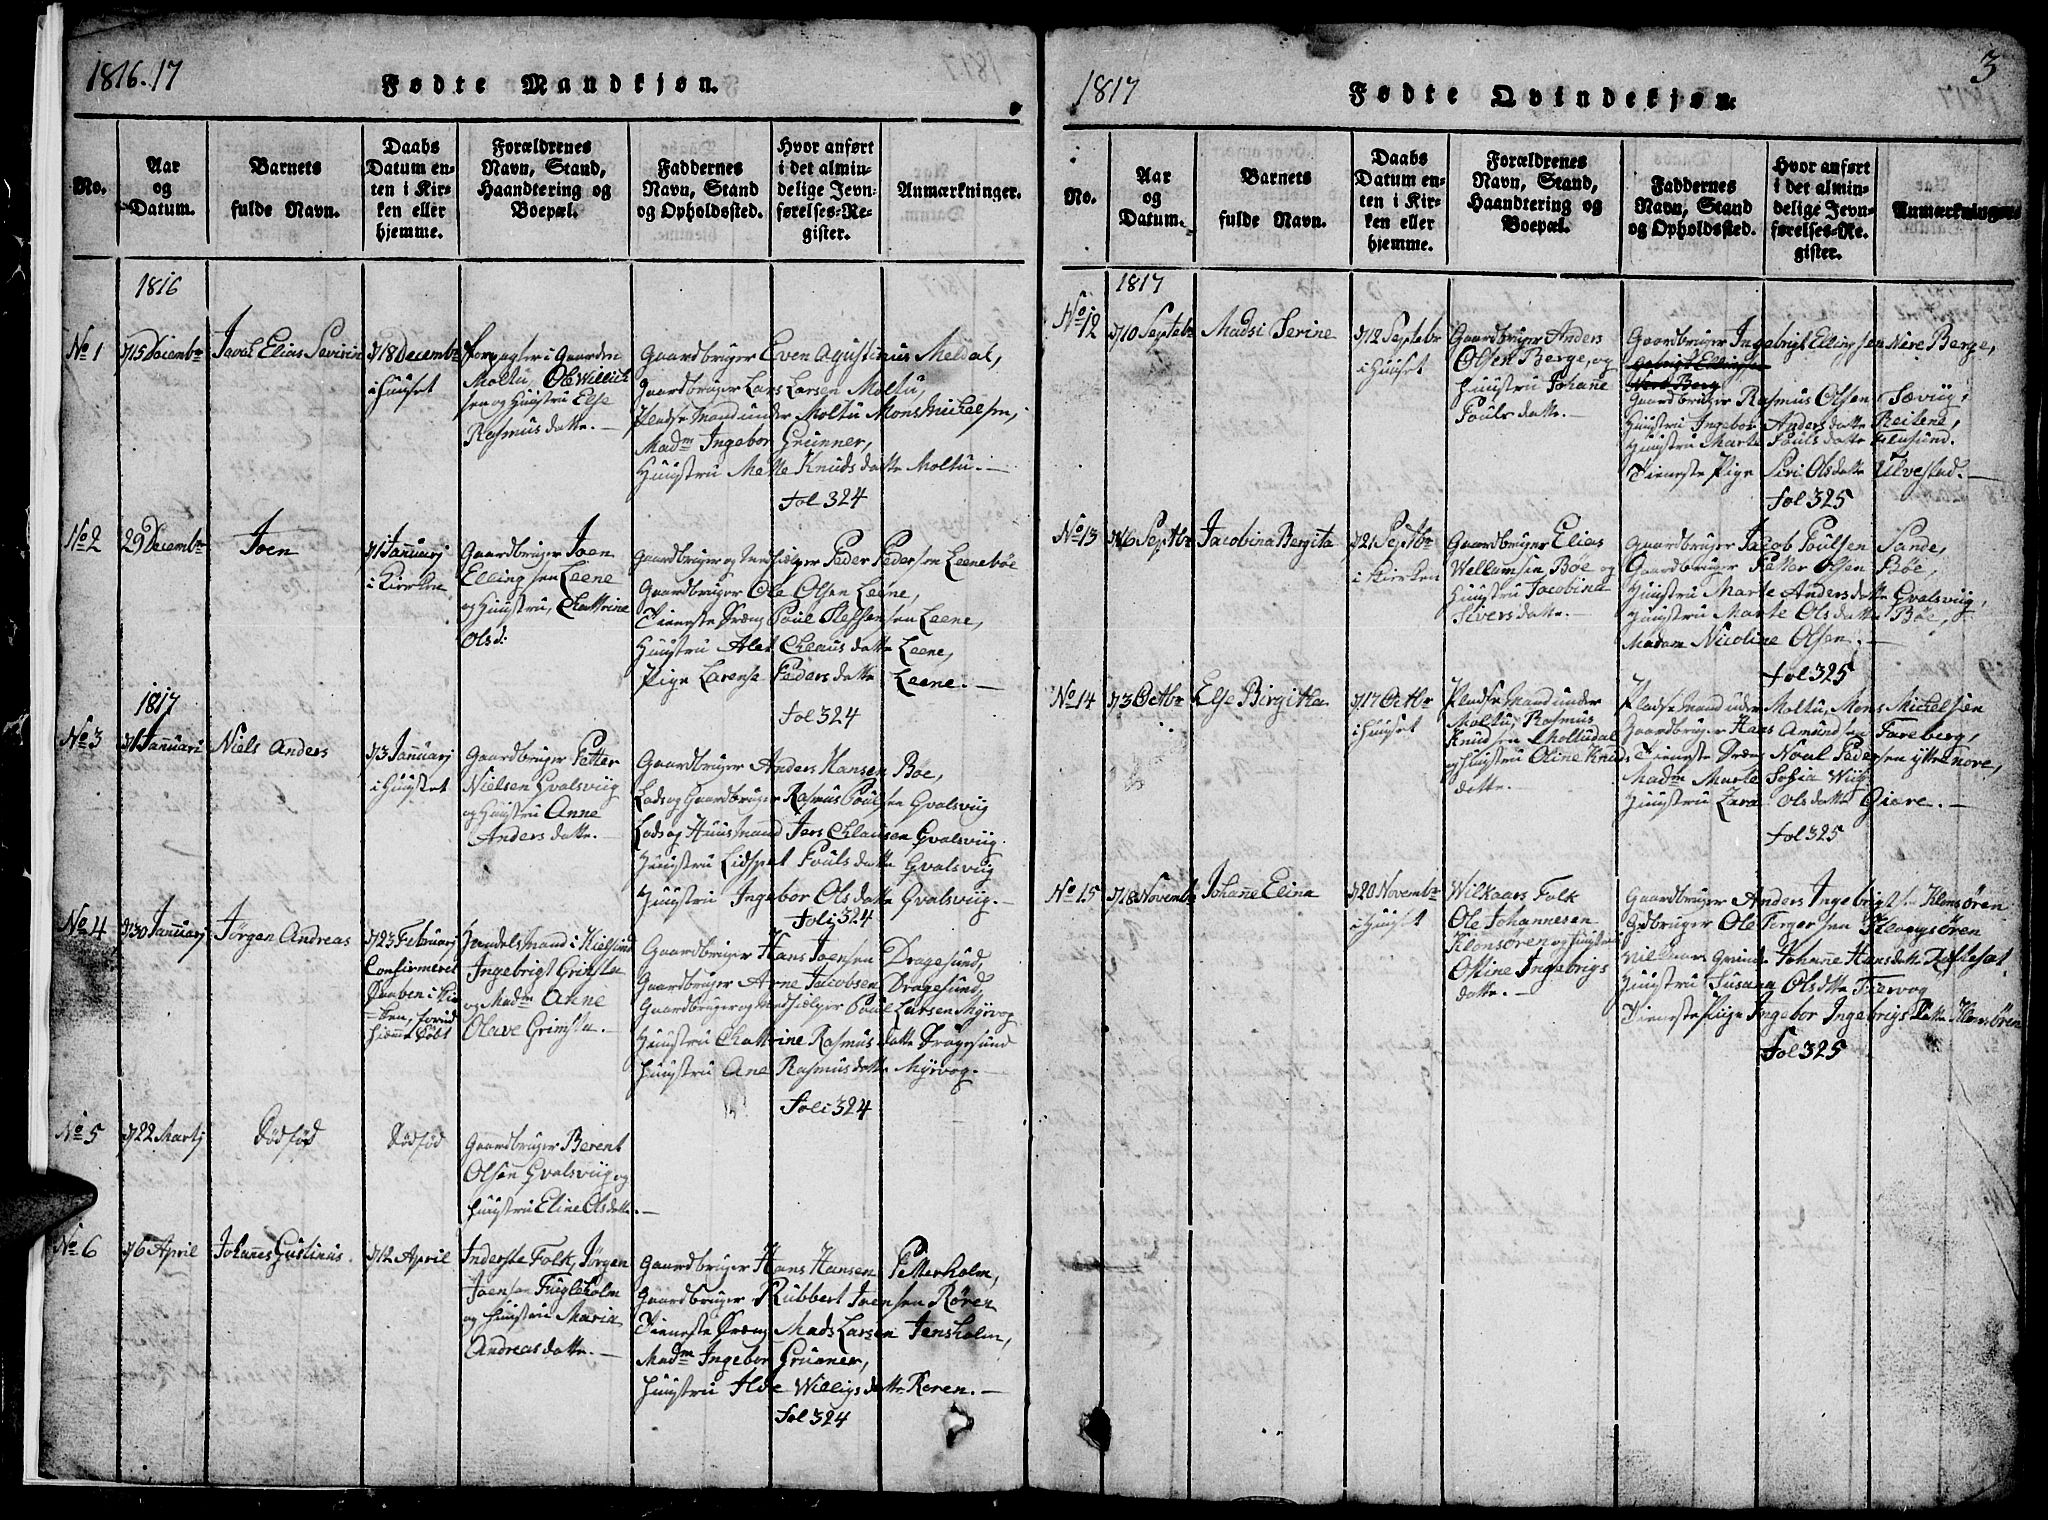 1816.17
Fødte Mandkjøn.
No.
Aar
og
Datum.
Barnets
fulde Navn.
Daabs
Datum en-
ten i Kir-
ken eller
hjemme.
Forældrenes
Navn, Stand,
Haandtering og
Boepæl.
Faddernes
Navn, Stand
og Opholdssted.
Hvor anført
i det almin-
delige Jevn-
førelses-Re-
gister.
Anmærkninger.
1816
No 1
d 15 Decembr
Elias Sevirin
d 18 Decembr
i Huuset
Forpagter i Gaarden
Moltu, Ole Willick
sen og Hustru Else
Rasmusdatte.—
Gaardbruger Even Agustinus Meldal,
Gaardbruger Lars Larsen Moltu,
Pladsemand under Moltu Mons Mickelsen,
Madm Ingebor Grünner,
Huustru Mette Knudsdatte Moltu.—
Fol 324
No 2
29 Decembr
Joen
d 1 Januarj
i Kierken
Gaardbruger Joen
Ellingsen Leene
og Huustru, Chattrine
Olsd:
Gaardbruger og Medhielper Peder Pedersen Leenebøe
Gaardbruger Ole Olsen Leene,
Tieneste Dræng Poul Steffensen Leene,
Huustru Alet Claus datte Leene,
Pige Larense Peders datte Leene.—
Fol 324
1817
No 3
d 1 Januari
Niels Anders
d 3 Januarj
i Huuset
Gaardbruger Petter
Nielsen Gvalsviig
og Huustru Anne
Anders datte.—
Gaardbruger Anders Hansen Bøe,
Lods og Gaardbruger Rasmus Poulsen Gvalsviig
Lods og Huusmand Jars Clausen Gvalsviig.
Huustru Lidspet Pouls datte Gvalsviig
Huustru Ingebor Ols datte Gvalsviig.—
Foli 324
No 4
d 30 Januarj
Jørgen Andreas
d 23 Februarj
Confirmeret
Daaben i Kir
ken, forud
hiemme Døbt
Handelsmand i Kielsund
Ingebrigt Grimsta
og Madm Anne
Olave Grimsta.—
Gaardbruger Hans Joensen Dragesund,
Gaardbruger Arne Jacobsen Dragesund,
Gaardbruger og Medhielper Poul Larsen Myrvog
Huustru Chattrine Rasmus datte Dragesund
Huustru Ane Rasmusdatte Myrvog.—
Foli 324
No 5
d 22 Martj
Dødfød
Dødfød
Gaardbruger Berent
Olsen Gvalsviig og
Huustru Eline Olsdatte.—
No 6
d 6 April
Johannes Gustinus.
d 12 April
Inderste Folk, Jørgen
Joensen Fugleholm
og Huustru Maria
Andreas datte.—
Gaardbruger Hans Hansen Petterholm,
Gaardbruger Rubbert Joensen Røren
Tieneste Dræng Mads Larsen Jensholm,
Madm Ingebor Grünner,
Huustru Alde Willigs datte Roren.—
Fol 324
1817
3
Fødte Qvindekjøn.
No.
Aar
og
Datum.
Barnets
fulde Navn.
Daabs
Datum en-
ten i Kir-
ken eller
hjemme.
Forældrenes
Navn, Stand,
Haandtering og
Boepæl.
Faddernes
Navn, Stand
og Opholdssted.
Hvor anført
i det almin-
delige Jevn-
førelses-Re-
gister.
Anmærkninger.
1817
No 12
d 10 Septebr
Madsi Serine
d 12 Septebr
i Huuset
Gaardbruger Anders
Olsen Berge, og
Huustru Johane
Pouls datte.—
Gaardbruger Ingebrigt Ellingsen Nere Berge,
Gaardbruger Rasmus Olsen Sæviig,
Huustru Ingebor Anders datte Reitene,
Huustru Marte Pouls datte
Tieneste Pige Siri Olsdatte Ulvestad.—
Fol 325
No 13
d 16 Septbr
Jacobina Bergita
d 21 Septbr
i Kirken
Gaardbruger Elias
Wellamsen Bøe og
Huustru Jacobina
Siversdatte.—
Gaardbruger Jacob Poulsen Sande,
Gaardbruger Petter Olsen Bøe,
Huustru Marte Andersdatte Gvalsviig,
Huustru Marte Olsdatte Bøe,
Madam Nicoline Olsen.—
Fol 325
No 14
d 3 Octbr
Else Birgitha
d 17 Octbr
i Huuset
Pladsemand under
Moltu, Rasmus
Knudsen Molludal
og Huustru Oline Knuds
datte.—
Pladsemand under Moltu, Mons Mickelsen
Gaardbruger Hans Amundsen Fareberg,
Tieneste Dræng Noul Pedersen Yttrenore,
Madm Marte Sofia Wiig,
Huustru Zara Olsdatte Giøre.—
Fol 325
No 15
d 18 Novemb
Johane Elina
d 20 Novembr
i Huuset
Wilkaars Folk
Ole Johannesen
Klonsøren og Huustru
Ostine Ingebrigs
datte.—
Gaardbruger Anders Ingebrigtsen Klonsøren
Gdbruger Ole Torgersen Klongsøren
Vilkaars Qvinde Johanne Hansdatte Røstesat
Huustru Susana Olsdtte Tiervog
Tieneste Piige Ingebor Ingebrigs datte Klonsøren
Fol 325